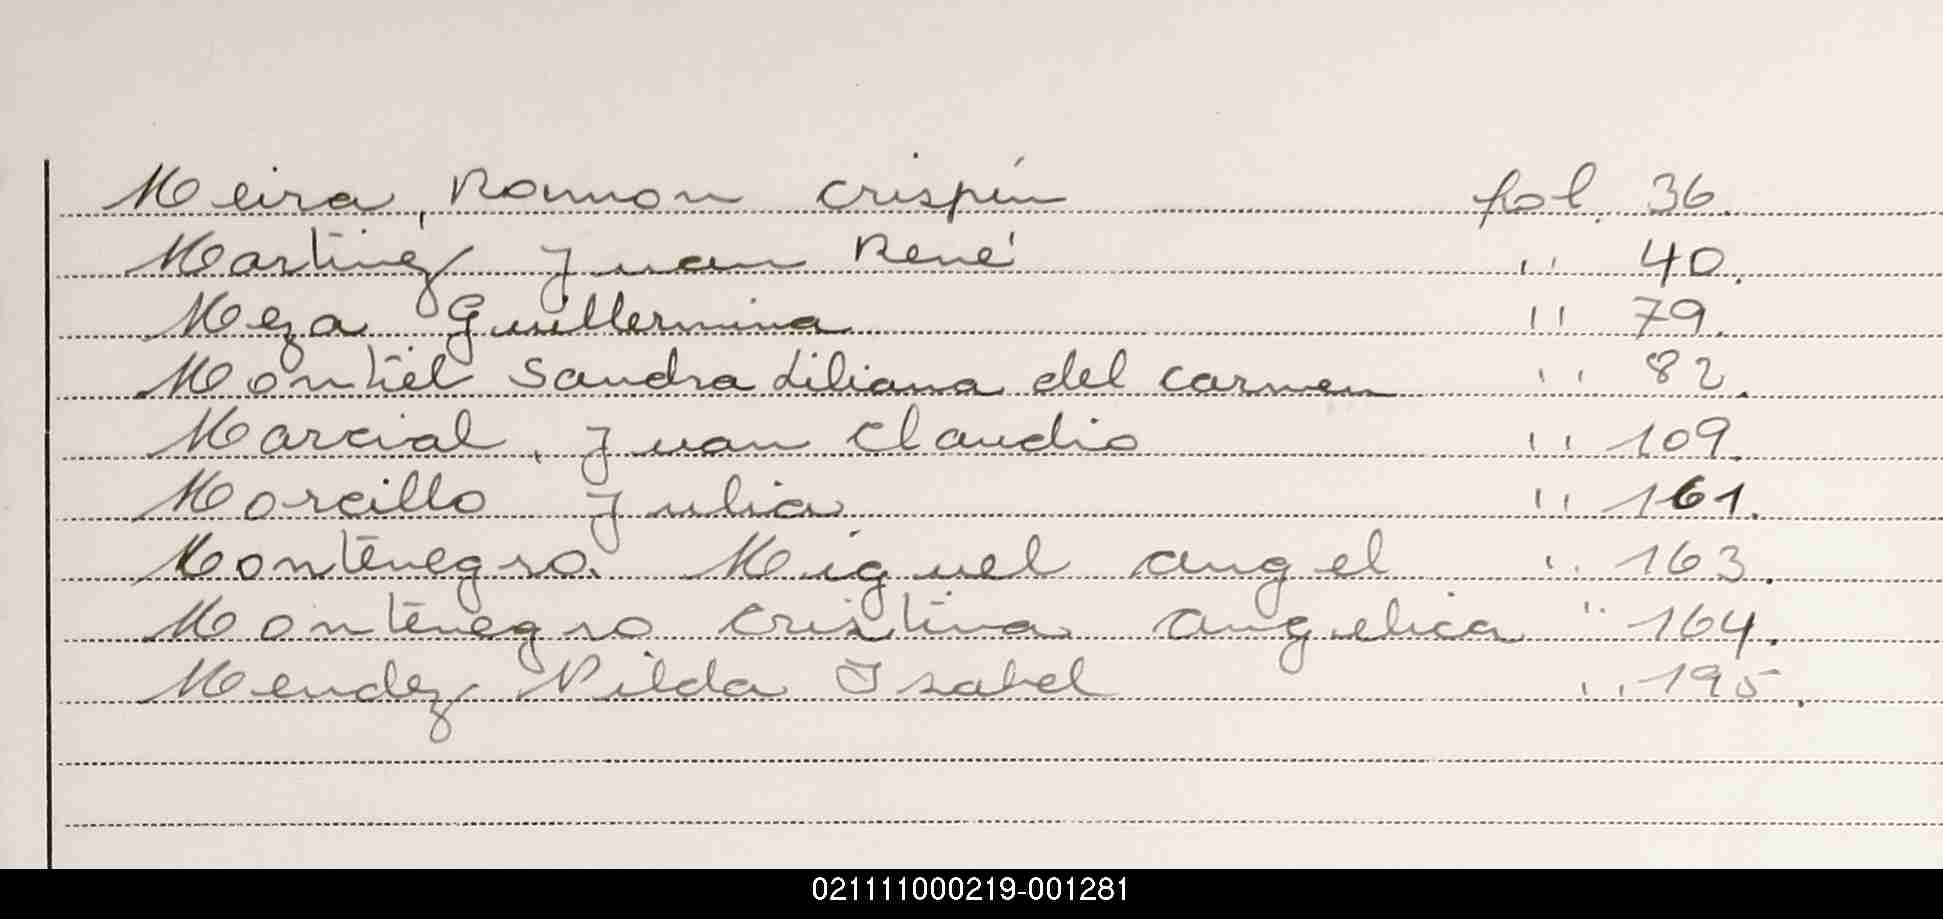 Meira, Ramon Crispín fol. 36.
Martinez Juan René " 40.
Meza Guillermina " 79.
Montiel Sandra Liliana del Carmen " 82.
Marcial, Juan Claudio " 109.
Morcillo Julia " 161.
Montenegro Miguel Angel " 163.
Montenegro Cristina Angelica " 164.
Mendez Nilda Isabel " 195.
021111000219-001281